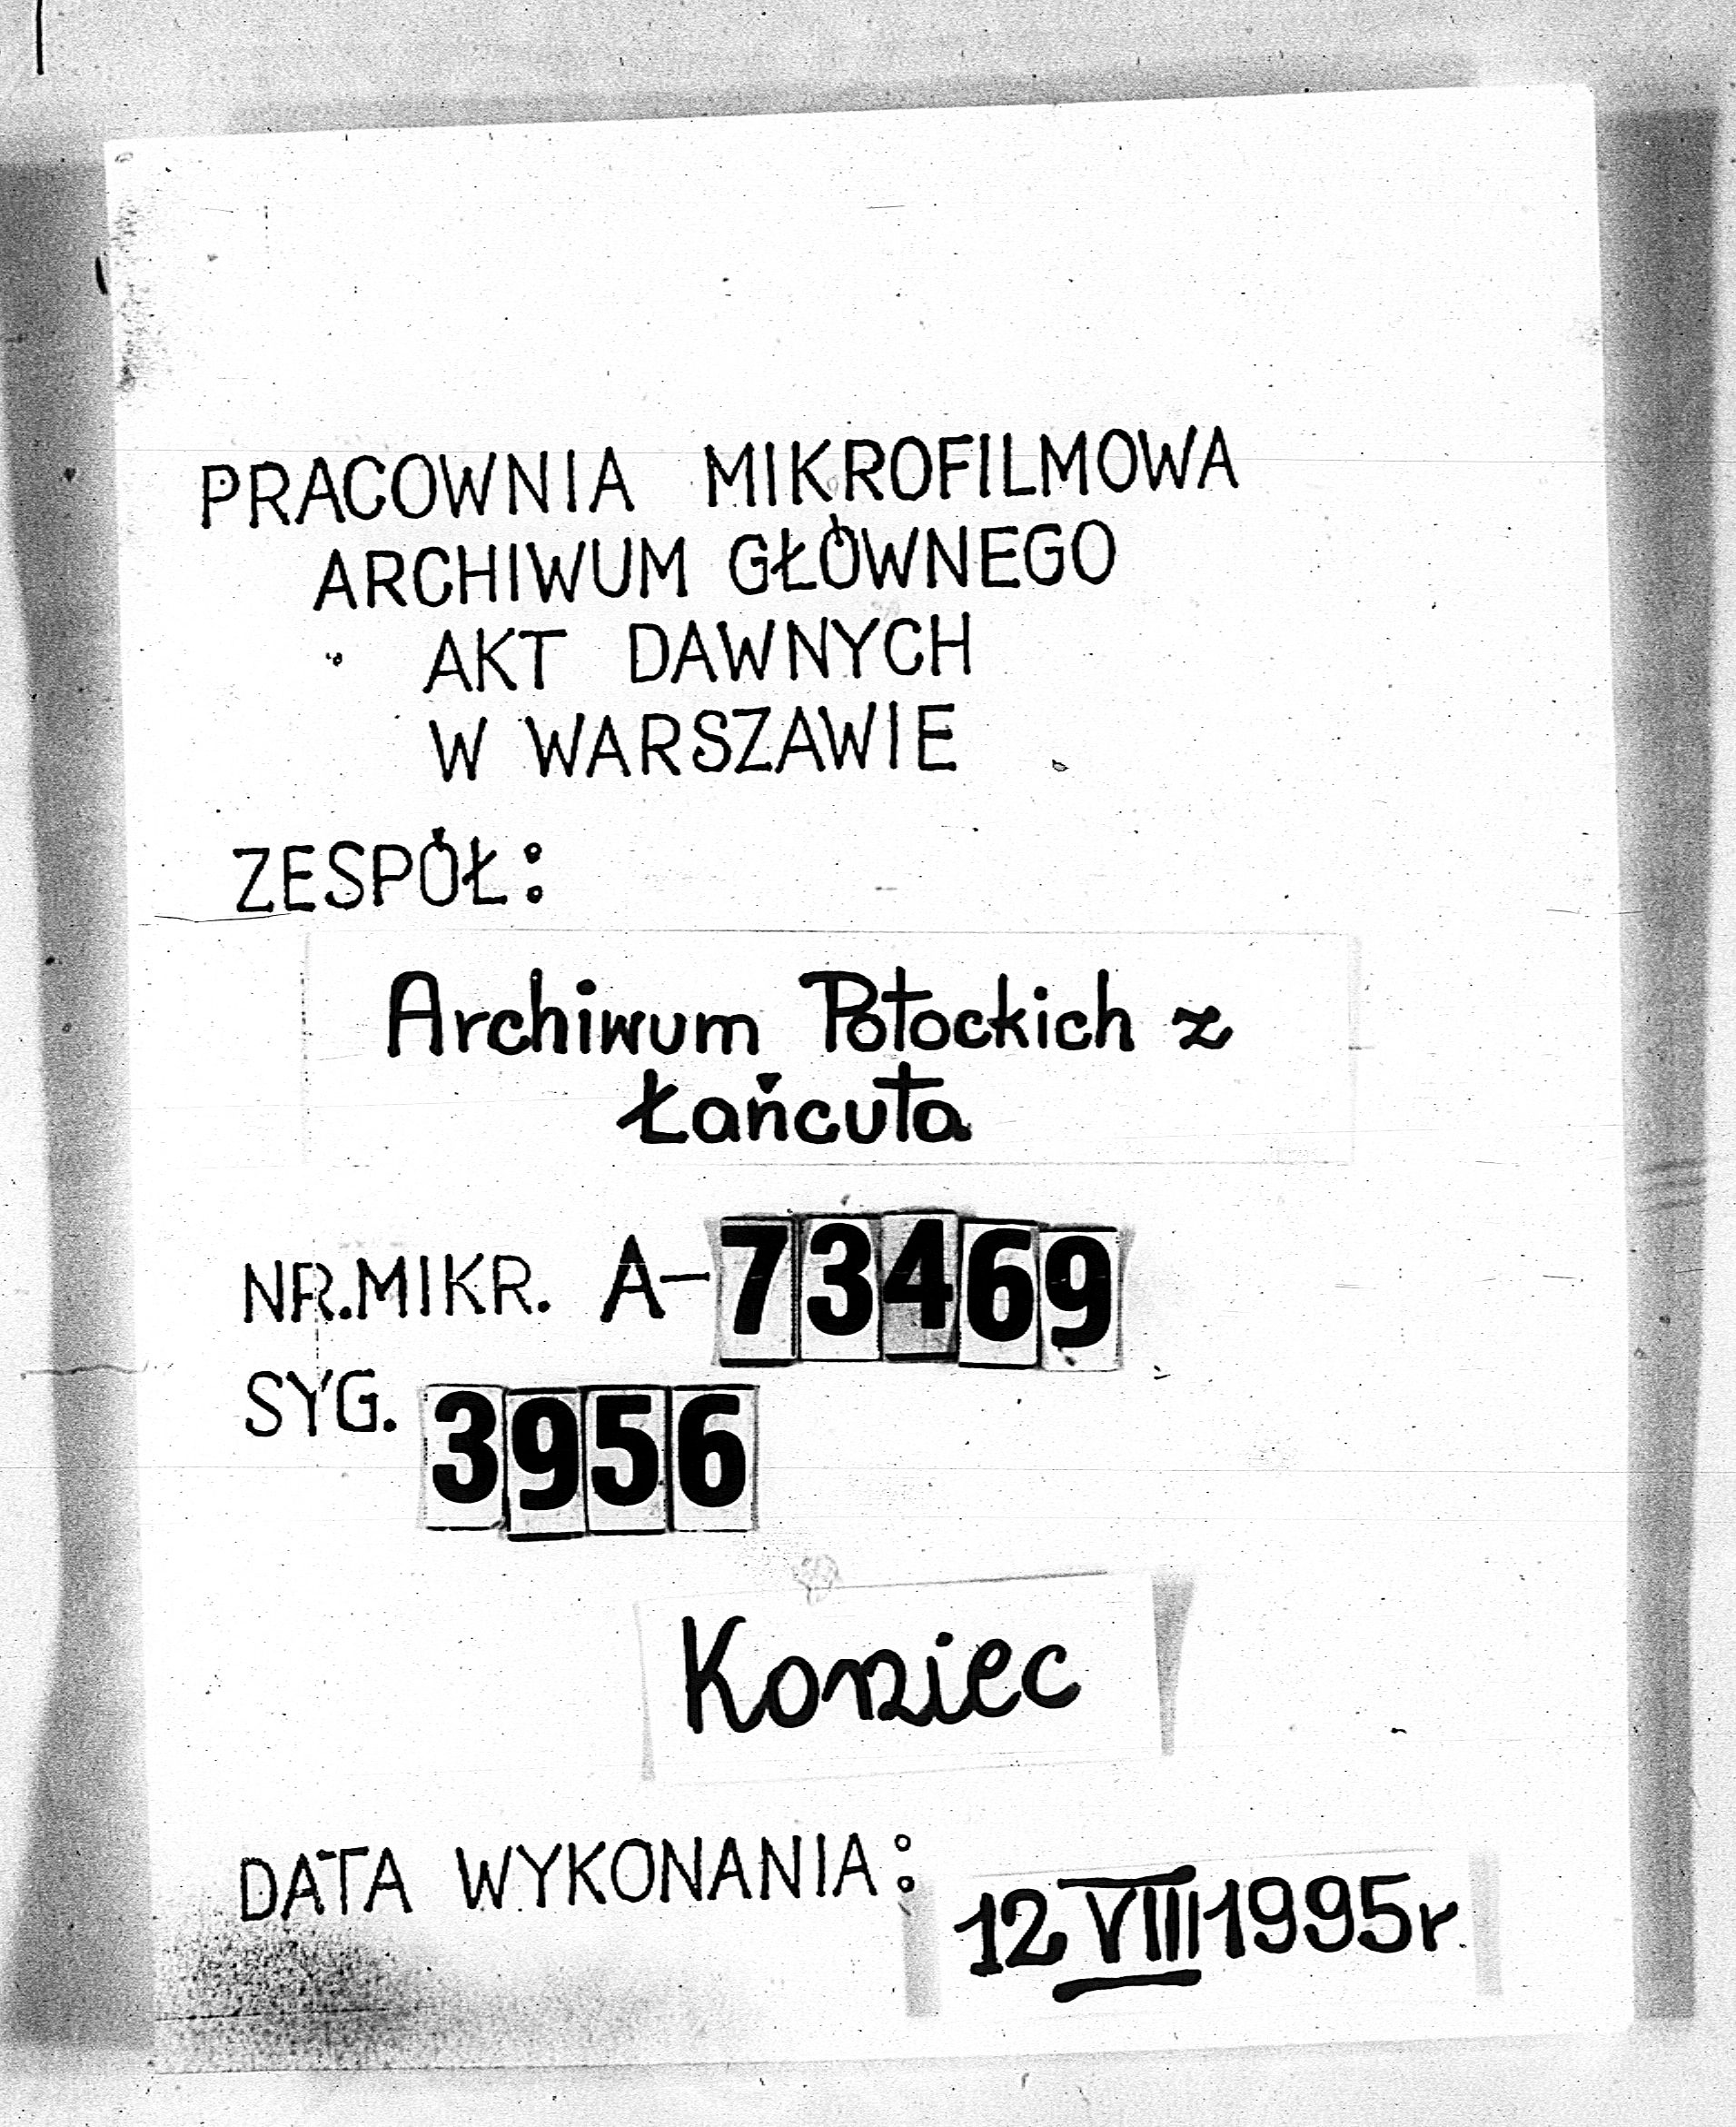 PRACOWNIA MIKROFILMOWA
ARCHIWUM GŁÓWNEGO
AKT DAWNYCH
W WARSZAWIE
ZESPÓŁ:
Archiwum Potockich z
Łańcuta
NR.MIKR. A-73469
SYG. 3956
Koniec
DATA WYKONANIA: 12 VIII 1995r.